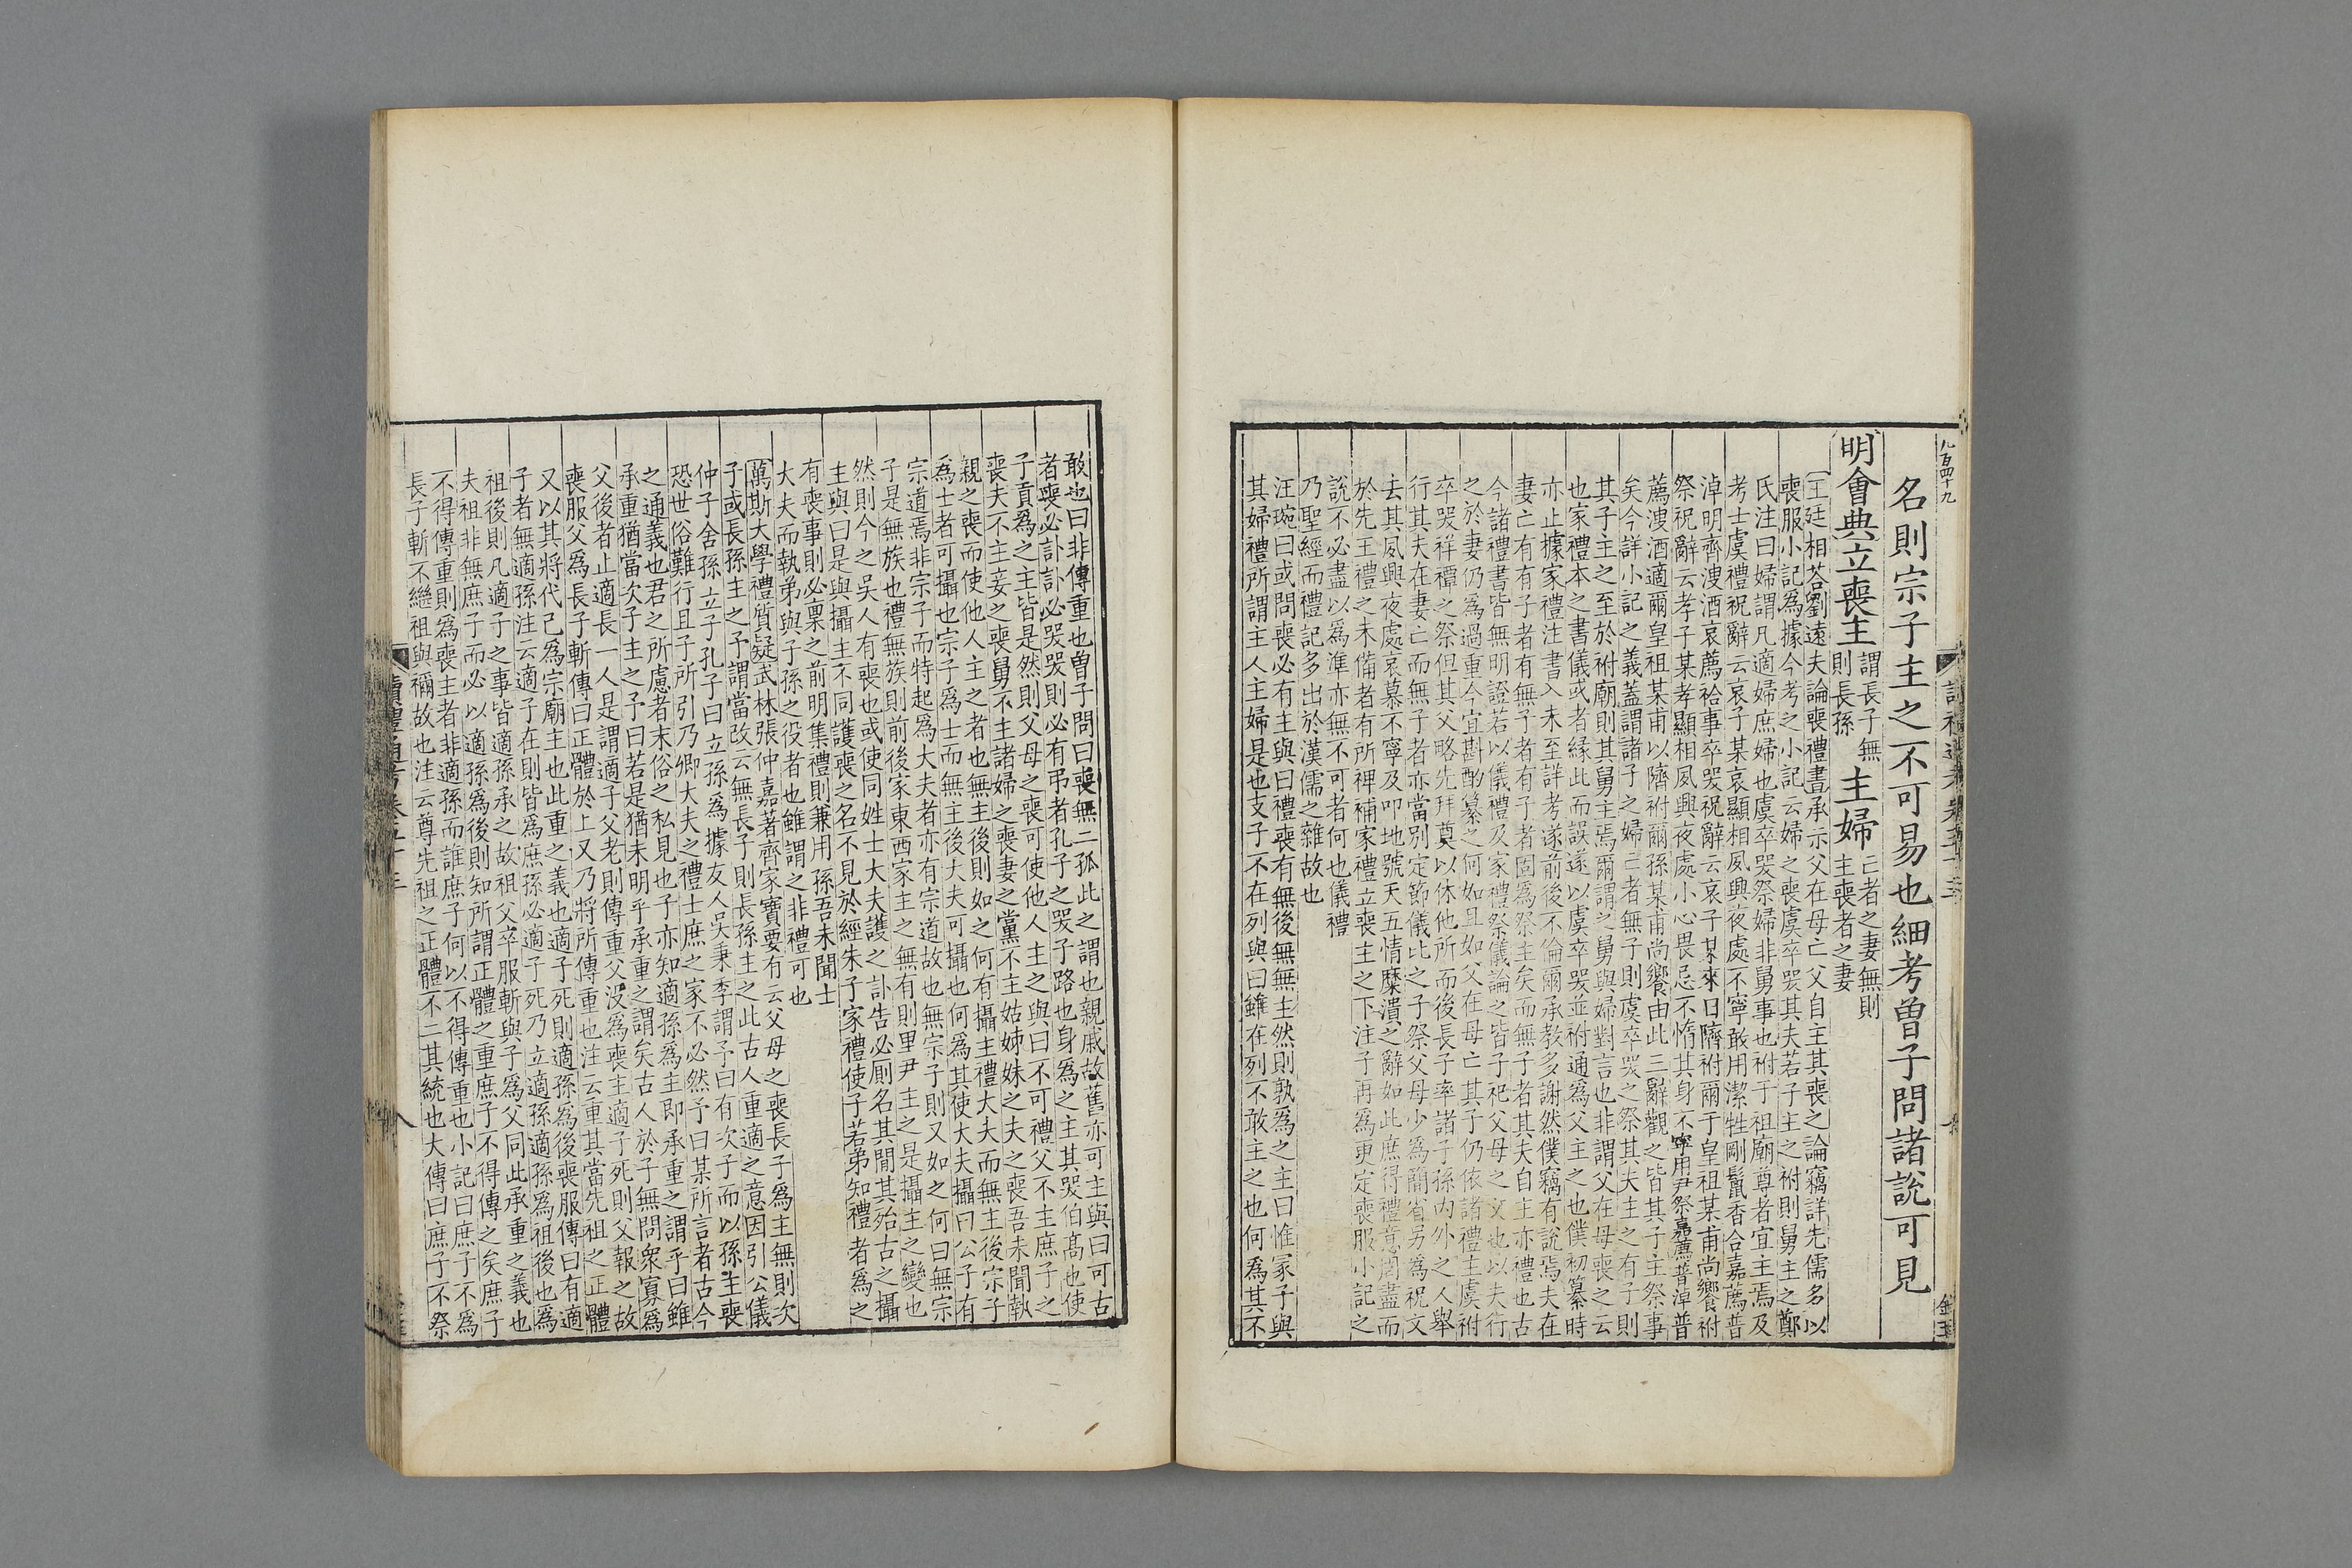 名則宗子主之不可易也細考曽子問諸說可見
明會典立喪主謂長子無則長孫主婦亡者之妻無則主喪者之妻
王廷相荅劉遠夫論喪禮書承示父在母亡父自主其喪之論竊詳先儒名以
喪服小記為據今考之小記云婦之喪虞卒哭其夫若子主之祔則舅主之鄭
氏注曰婦謂凡適婦庶婦也虞卒哭祭婦非舅事也祔于祖廟尊者宜主焉及
考士虞禮祝辭云哀子某哀顯相夙興夜處不寧敢用潔牲剛鬣香合嘉薦普
淖明齊溲酒哀薦祫事卒哭祝辭云哀子某來日隮祔爾于皇祖某甫尚饗祔
祭祝辭云孝子某孝顯相夙興夜處小心畏忌不惰其身不寧用尹祭嘉薦普淖普
薦溲酒適爾皇祖某甫以隮祔爾孫某甫尚饗由此三辭觀之皆其子主祭事
矣今詳小記之義蓋謂諸子之婦亡者無子則虞卒哭之祭其夫主之有子則
其子主之至於祔廟則其舅主焉爾謂之舅與婦對言也非謂父在母喪之云
也家禮本之書儀或者縁此而誤遂以虞卒哭並祔通為父主之也僕初纂時
亦止據家禮注書入未至詳考遂前後不倫爾承教多謝然僕竊有說焉夫在
妻亡有有子者有無子者有子者固為祭主矣而無子者其夫自主亦禮也古
今諸禮書皆無明證若以儀禮及家禮祭儀論之皆子祀父母之文也以夫行
之於妻仍為過重今宜斟酌纂之何如且如父在母亡其子仍依諸禮主虞祔
卒哭祥禫之祭但其父略先拜奠以休他所而後長子率諸子孫内外之人舉
行其夫在妻亡而無子者亦當别定節儀比之子祭父母少為簡省另為祝文
去其夙興夜處哀慕不寧及叩地號天五情糜潰之辭如此庶得禮意周盡而
於先王禮之未備者有所裨補家禮立喪主之下注子再為更定喪服小記之
說不必盡以為準亦無不可者何也儀禮
乃聖經而禮記多出於漢儒之雜故也
汪琬曰或問喪必有主與曰禮喪有無後無無主然則孰為之主曰惟冢子與
其婦禮所謂主人主婦是也支子不在列與曰雖在列不敢主之也何為其不
敢也曰非傳重也曽子問曰喪無二孤此之謂也親戚故舊亦可主與曰可古
者喪必訃訃必哭哭則必有弔者孔子之哭子路也身為之主其哭伯髙也使
子貢為之主皆是然則父母之喪可使他人主之與曰不可禮父不主庶子之
喪夫不主妾之喪舅不主諸婦之喪妻之黨不主姑姊妹之夫之喪吾未聞執
親之喪而使他人主之者也無主後則如之何有攝主禮大夫而無主後宗子
為士者可攝也宗子為士而無主後大夫可攝也何為其使大夫攝曰公子有
宗道焉非宗子而特起為大夫者亦有宗道故也無宗子則又如之何曰無宗
子是無族也禮無族則前後家東西家主之無有則里尹主之是攝主之變也
然則今之吳人有喪也或使同姓士大夫護之訃告必厠名其閒其殆古之攝
主與曰是與攝主不同護喪之名不見於經朱子家禮使子若弟知禮者為之
有喪事則必禀之前明集禮則兼用孫吾未聞士
大夫而執弟與子孫之役者也雖謂之非禮可也
萬斯大學禮質疑武林張仲嘉著齊家寶要有云父母之喪長子為主無則次
子或長孫主之予謂當改云無長子則長孫主之此古人重適之意因引公儀
仲子舍孫立子孔子曰立孫為據友人吳秉季謂予曰有次子而以孫主喪
恐世俗難行且子所引乃卿大夫之禮士庶之家不必然予曰某所言者古今
之通義也君之所慮者末俗之私見也子亦知適孫為主即承重之謂乎曰雖
承重猶當次子主之予曰若是猶未明乎承重之謂矣古人於子無問衆寡為
父後者止適長一人是謂適子父老則傳重父没為喪主適子死則父報之故
喪服父為長子斬傳曰正體於上又乃將所傳重也注云重其當先祖之正體
又以其將代己為宗廟主也此重之義也適子死則適孫為後喪服傳曰有適
子者無適孫注云適子在則皆為庶孫必適子死乃立適孫適孫為祖後也為
祖後則凡適子之事皆適孫承之故祖父卒服斬與子為父同此承重之義也
夫祖非無庶子而必以適孫為後則知所謂正體之重庶子不得傳之矣庶子
不得傳重則為喪主者非適孫而誰庶子何以不得傳重也小記曰庶子不為
長子斬不繼祖與禰故也注云尊先祖之正體不二其統也大傳曰庶子不祭